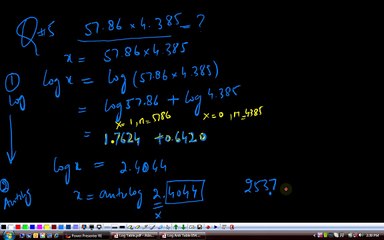 Q#5 57.86 × 4.385 = ?
x = 57.86 × 4.385
① log x = log (57.86 × 4.385)
Log
= log 57.86 + log 4.385
x=1, n=5786 x=0, n=4385
= 1.7624 + 0.6420
log x = 2.4044
② x = antilog 2.4044 2537.
Antilog
x